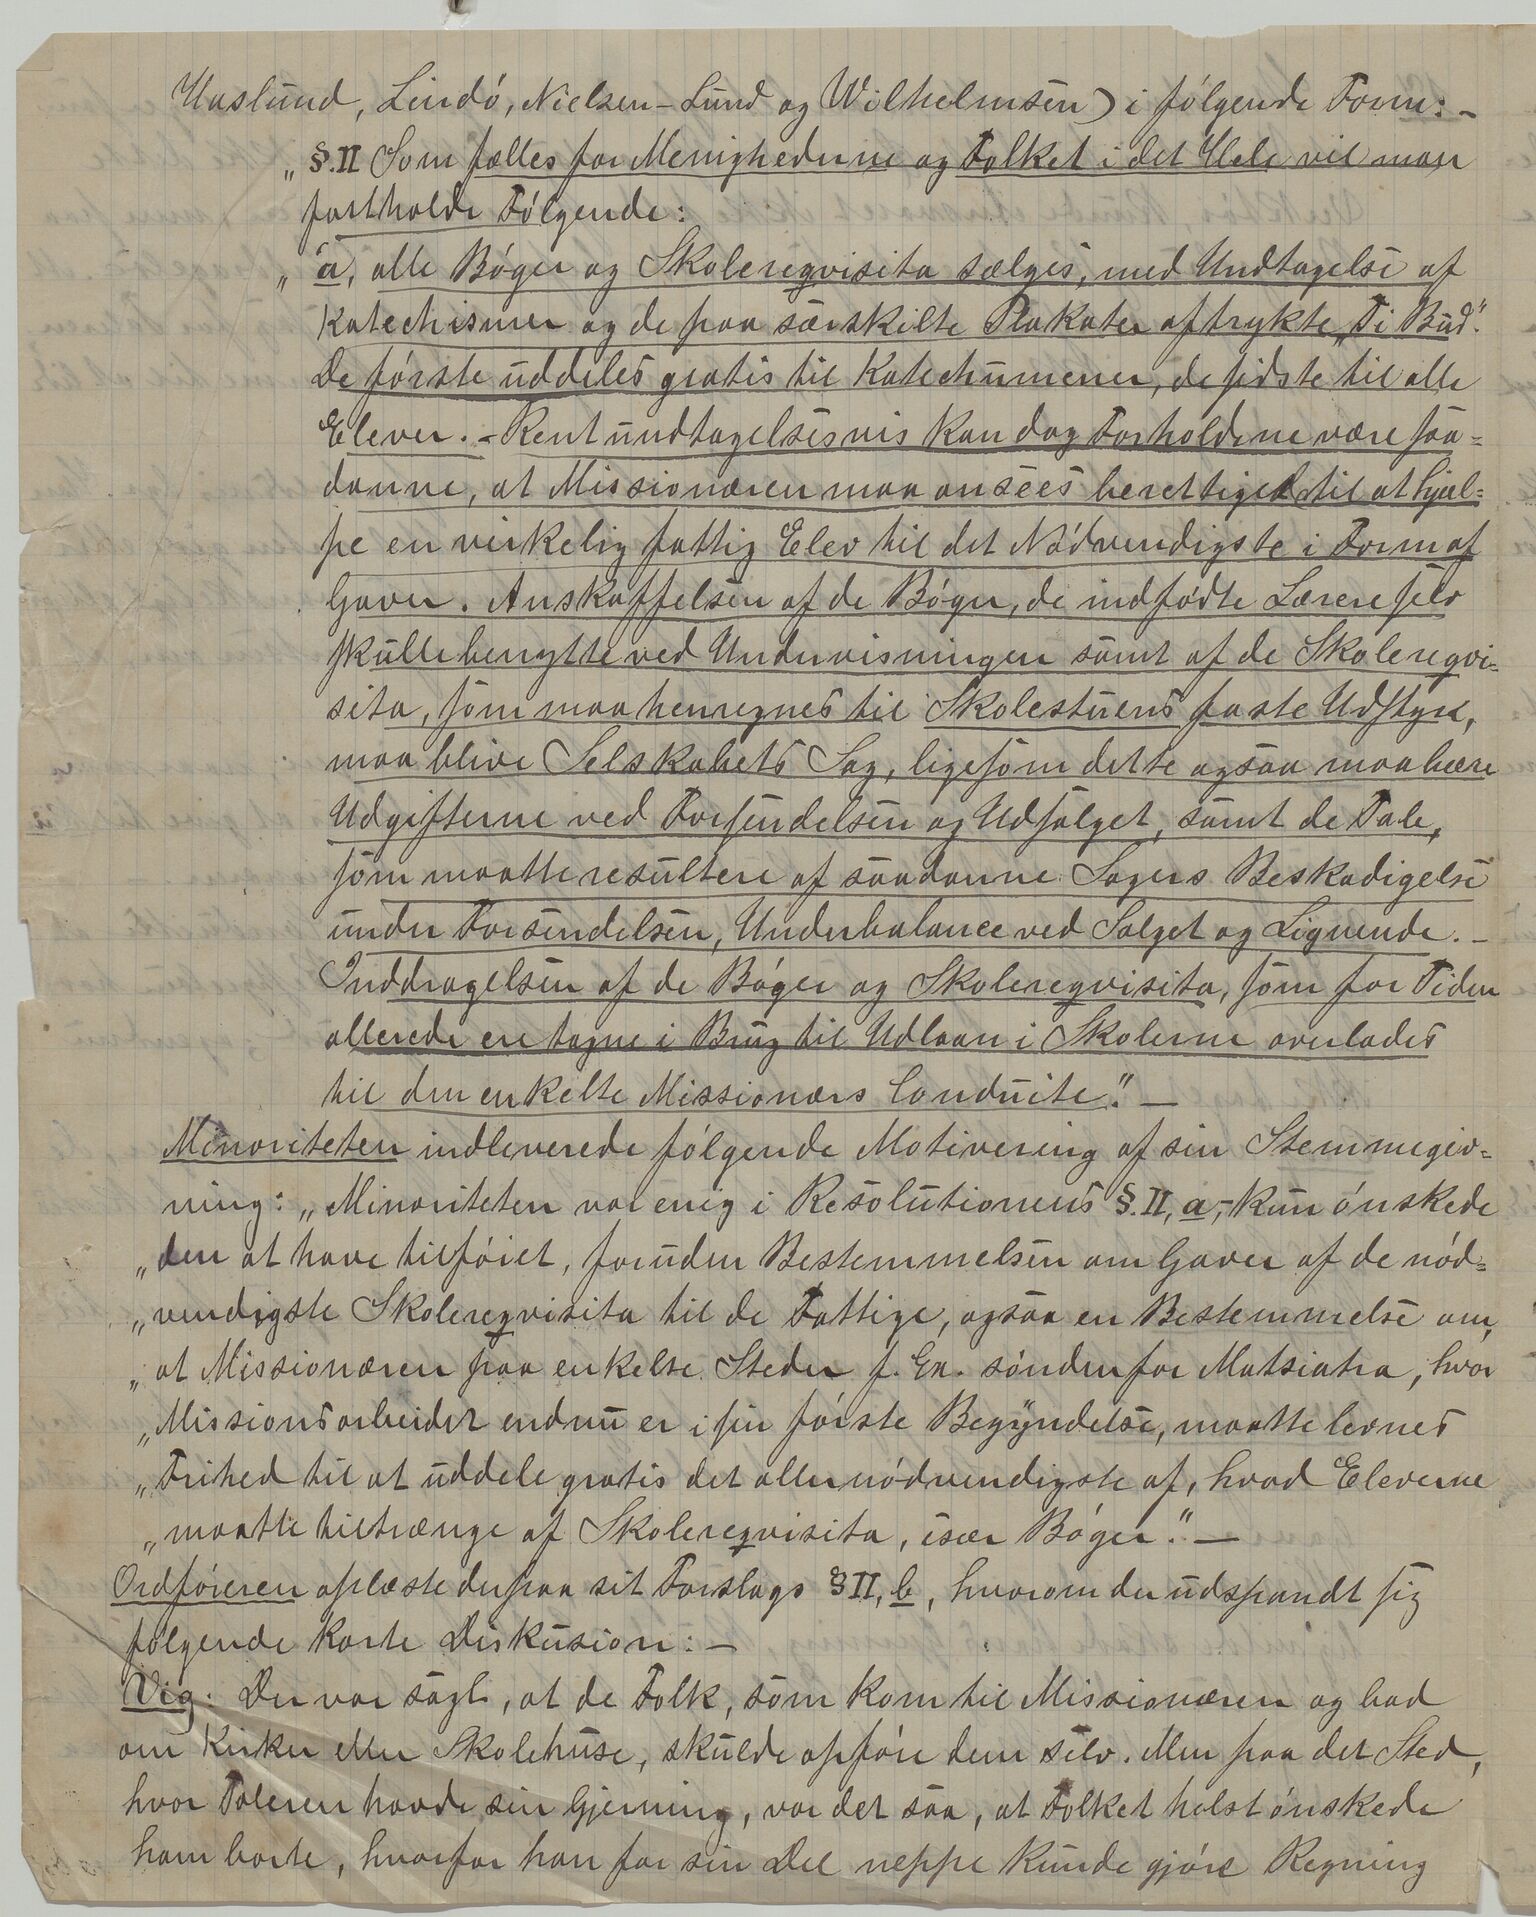 Haslund, Lindö, Nielsen-Lund og Wilhelmsen) i følgende Form: -
„§. II Som fælles for Menighederne og Folket i det Hele vil man
fastholde Følgende:
„a, alle Bøger og Skolereqvisita sælges, med Undtagelse af
Katechismer og de paa særskilte Plakater aftrykte „Ti Bud".
De første uddeles gratis til Katechumener, de sidste til alle
Elever. - Rent undtagelsesvis kan dog Forholdene være saa=
danne, at Missionæren maa ansees berettiget til at hjæl=
pe en virkelig fattig Elev til det Nødvendigste i Form af
Gaver. Anskaffelsen af de Bøger, de indfødte Lærere selv
skulle benytte ved Undervisningen samt af de Skolereqvi=
sita, som maa henregnes til Skolestuens faste Udstyr,
maa blive Selskabets Sag, ligesom dette ogsaa maa bære
Udgifterne ved Forsendelsen og Udsalget, samt de Tab,
som maatte resultere af saadanne Sagers Beskadigelse
under Forsendelsen, Underbalance ved Salget og Lignende. -
Inddragelsen af de Bøger og Skolereqvisita, som for Tiden
allerede ere tagne i Brug til Udlaan i Skolerne overlades
til den enkelte Missionærs Conduite." -
Minoriteten indleverede følgende Motivering af sin Stemmegiv=
ning: „Minoriteten var enig i Resolutionens §. II, a,- kun ønskede
„den at have tilføiet, foruden Bestemmelsen om Gaver af de nød=
„vendigste Skolereqvisita til de Fattige, ogsaa en Bestemmelse om,
„at Missionæren paa enkelte Steder f. Ex. sønden for Matsiatra, hvor
„Missionsarbeidet endnu er i sin første Begyndelse, maatte levnes
„Frihed til at uddele gratis det allernødvendigste af, hvad Eleverne
„maatte tiltrænge af Skolereqvisita, især Bøger." -
Ordføreren oplæste derpaa sit Forslags § II, b, hvorom der udspandt sig
følgende korte Diskusion: -
Vig: Der var sagt, at de Folk, som kom til Missionæren og bad
om Kirker eller Skolehuse, skulde opføre dem selv. Men paa det Sted,
hvor Taleren havde sin Gjerning, var det saa, at Folket helst ønskede
ham borte, hvorfor han for sin Del neppe kunde gjøre Regning